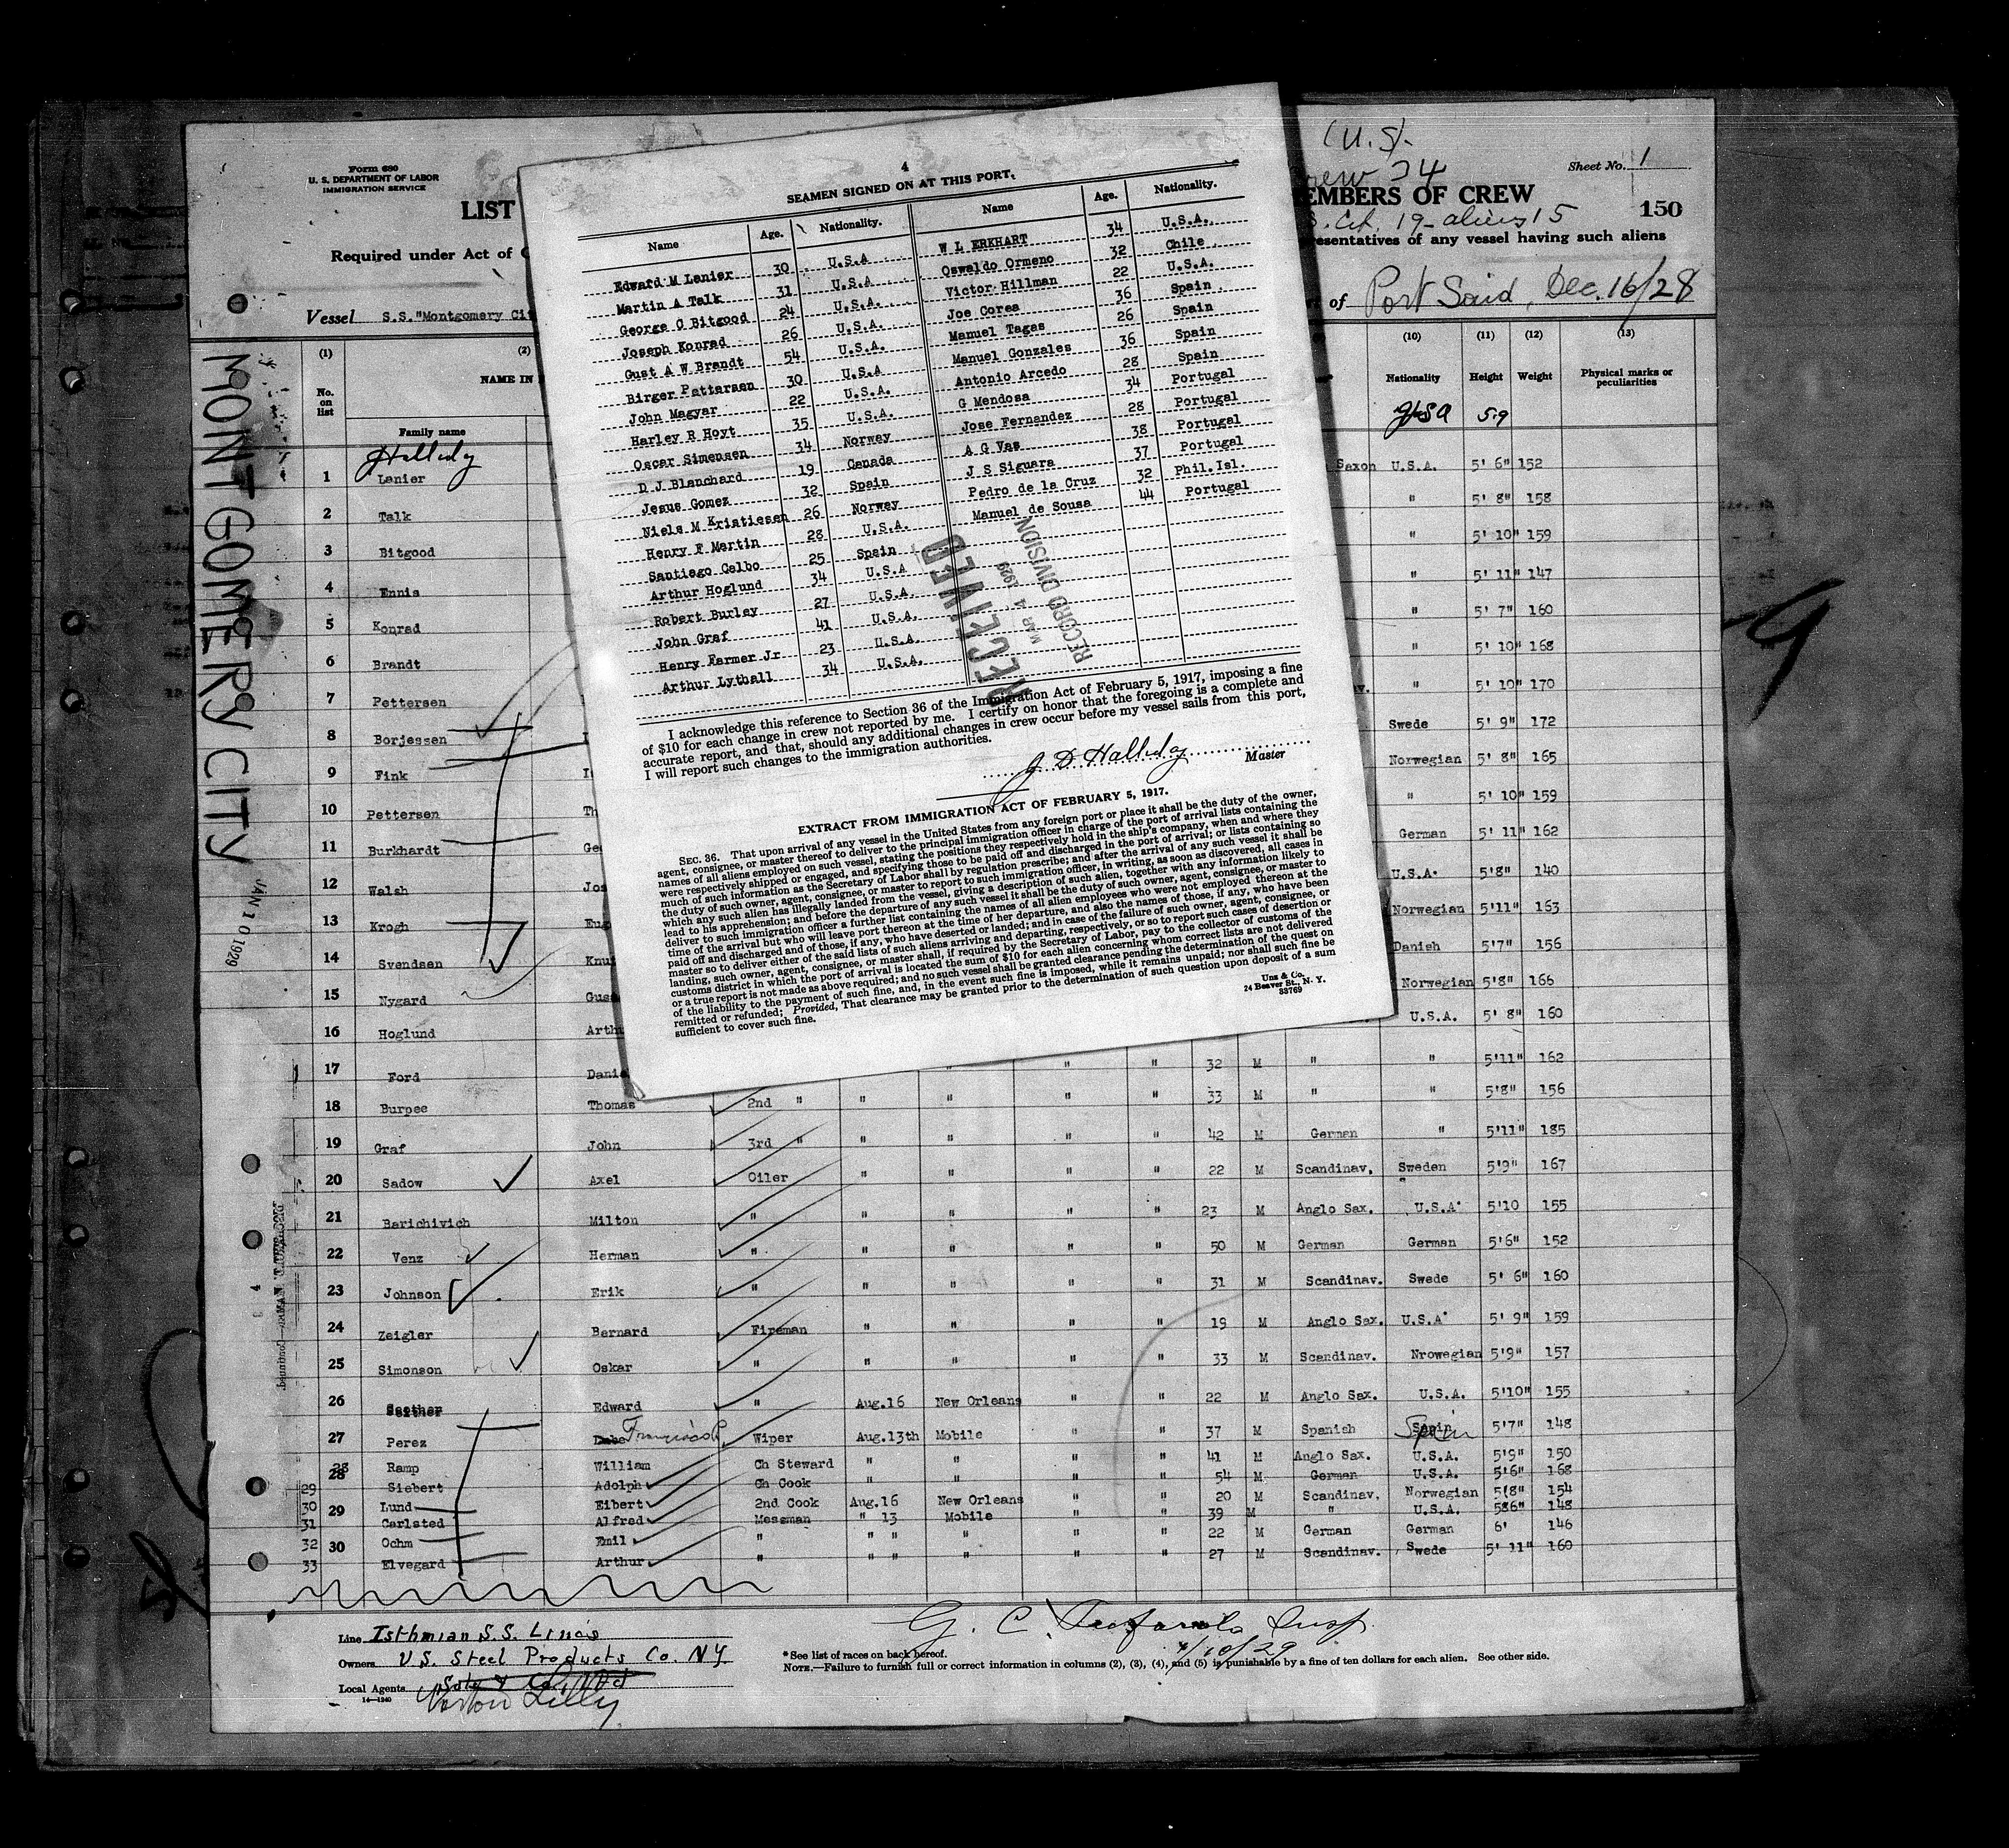 (U.S).
Form 680
U. S. DEPARTMENT OF LABOR
IMMIGRATION SERVICE
Sheet No. 1
34
LIST
EMBERS OF CREW
150
S. Cit. 19 - aliens 15
Required under Act of
presentatives of any vessel having such aliens
Vessel S.S."Montgomery Cit
of Port Said, Dec. 16/28
MONTGOMERY CITY
JAN 10 1929
4
SEAMEN SIGNED ON AT THIS PORT.
Name Age. Nationality. Name Age. Nationality.
Edward M Lanier 30 U.S.A W L ERKHART 34 U.S.A.
Martin A Talk 31 U.S.A Oswaldo Ormeno 32 Chile
George O Bitgood 24 U.S.A. Victor Hillman 22 U.S.A.
Joseph Konrad 26 U.S.A. Joe Corea 36 Spain
Gust A W Brandt 54 U.S.A. Manuel Tagas 26 Spain
Birger Pattersen 30 U.S.A Manuel Gonzales 36 Spain
John Magyar 22 U.S.A. Antonio Arcedo 28 Spain
Harley R Hoyt 35 U.S.A. G Mendosa 34 Portugal
Oscar Simensen 34 Norway Jose Fernandez 28 Portugal
D J Blanchard 19 Canada A G Vas 38 Portugal
Jesus Gomez 32 Spain J S Siguara 37 Portugal
Niels M Kristiesen 26 Norway Pedro de la Cruz 32 Phil.Isl.
Henry F Martin 28 U.S.A. Manuel de Sousa 44 Portugal
Santiago Celbo 25 Spain
Arthur Hoglund 34 U.S.A
Robert Burley 27 U.S.A.
John Graf 41 U.S.A.
Henry Farmer Jr 23 U.S.A.
Arthur Lythall 34 U.S.A.
RECEIVED
MAR 4 1929
RECORD DIVISION
I acknowledge this reference to Section 36 of the Immigration Act of February 5, 1917, imposing a fine
of $10 for each change in crew not reported by me. I certify on honor that the foregoing is a complete and
accurate report, and that, should any additional changes in crew occur before my vessel sails from this port,
I will report such changes to the immigration authorities.
J D Halliday Master
EXTRACT FROM IMMIGRATION ACT OF FEBRUARY 5, 1917.
SEC. 36. That upon arrival of any vessel in the United States from any foreign port or place it shall be the duty of the owner,
agent, consignee, or master thereof to deliver to the principal immigration officer in charge of the port of arrival lists containing the
names of all aliens employed on such vessel, stating the positions they respectively hold in the ship's company, when and where they
were respectively shipped or engaged, and specifying those to be paid off and discharged in the port of arrival; or lists containing so
much of such information as the Secretary of Labor shall by regulation prescribe; and after the arrival of any such vessel it shall be
the duty of such owner, agent, consignee, or master to report to such immigration officer, in writing, as soon as discovered, all cases in
which any such alien has illegally landed from the vessel, giving a description of such alien, together with any information likely to
lead to his apprehension; and before the departure of any such vessel it shall be the duty of such owner, agent, consignee, or master to
deliver to such immigration officer a further list containing the names of all alien employees who were not employed thereon at the
time of the arrival but who will leave port thereon at the time of her departure, and also the names of those, if any, who have been
paid off and discharged and of those, if any, who have deserted or landed; and in case of the failure of such owner, agent, consignee, or
master so to deliver either of the said lists of such aliens arriving and departing, respectively, or so to report such cases of desertion or
landing, such owner, agent, consignee, or master shall, if required by the Secretary of Labor, pay to the collector of customs of the
customs district in which the port of arrival is located the sum of $10 for each alien concerning whom correct lists are not delivered
or a true report is not made as above required; and no such vessel shall be granted clearance pending the determination of the quest on
of the liability to the payment of such fine, and, in the event such fine is imposed, while it remains unpaid; nor shall such fine be
remitted or refunded; Provided, That clearance may be granted prior to the determination of such question upon deposit of a sum
sufficient to cover such fine.
Unz & Co.
24 Beaver St., N. Y.
33769
(1) (2) (10) (11) (12) (13)
No. on list NAME IN Nationality Height Weight Physical marks or peculiarities
Family name
Halliday USA 5-9
1 Lanier Saxon U.S.A. 5' 6" 152
2 Talk " 5' 8" 158
3 Bitgood " 5' 10" 159
4 Ennis " 5' 11" 147
5 Konrad " 5' 7" 160
6 Brandt " 5' 10" 168
7 Pettersen v. " 5' 10" 170
8 Borjessen Swede 5' 9" 172
9 Fink Norwegian 5' 8" 165
10 Pettersen Th " 5' 10" 159
11 Burkhardt Geo German 5' 11" 162
12 Walsh Jos U.S.A. 5'8" 140
13 Krogh Eug Norwegian 5'11" 163
14 Svendsen Knu Danish 5'7" 156
15 Nygard Gus Norwegian 5'8" 166
16 Hoglund Arth U.S.A. 5' 8" 160
17 Ford Danie " " 32 M " " 5'11" 162
18 Burpee Thomas 2nd " " " " " 33 M " " 5'8" 156
19 Graf John 3rd " " " " " 42 M German " 5'11" 185
20 Sadow Axel Oiler " " " " 22 M Scandinav. Sweden 5'9" 167
21 Barichivich Milton " " " " " 23 M Anglo Sax. U.S.A. 5'10 155
22 Venz Herman " " " " " 50 M German German 5'6" 152
23 Johnson Erik " " " " " 31 M Scandinav. Swede 5' 6" 160
24 Zeigler Bernard Fireman " " " " 19 M Anglo Sax. U.S.A. 5' 9" 159
25 Simonson Oskar " " " " " 33 M Scandinav. Nrowegian 5'9" 157
26 Edward " Aug.16 New Orleans " " 22 M Anglo Sax. U.S.A. 5'10" 155
27 Perez Francisco Wiper Aug.13th Mobile " " 37 M Spanish Spain 5'7" 148
28 Ramp William Ch Steward " " " " 41 M Anglo Sax. U.S.A. 5'9" 150
29 Siebert Adolph Ch Cook " " " " 54 M German U.S.A. 5'6" 168
30 29 Lund Eibert 2nd Cook Aug.16 New Orleans " " 20 M Scandinav. Norwegian 5'8" 154
31 Carlsted Alfred Messman " 13 Mobile " " 39 M " U.S.A. 5'6" 148
32 30 Ochm Emil " " " " " " 22 M German German 6' 146
33 Elvegard Arthur " " " " " " 27 M Scandinav. Swede 5' 11" 160
Line Isthmian S.S. Lines
Owners U.S. Steel Products Co. N.Y.
Local Agents
Norton Lilly
14—1240
G. C. Insp.
1/10/29
*See list of races on back hereof.
NOTE.—Failure to furnish full or correct information in columns (2), (3), (4), and (5) is punishable by a fine of ten dollars for each alien. See other side.